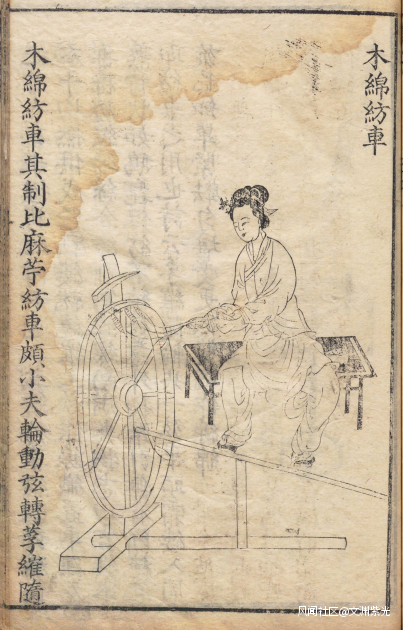 木綿紡車
木綿紡車其制比麻苧紡車頗小夫輪動弦轉莩繀隨
风闻社区@文渊紫光